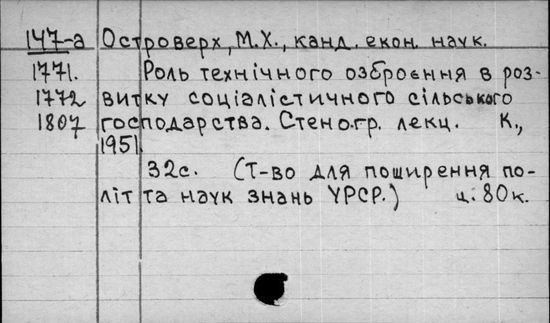 147-а Островерх, М.Х., канд. екон. наук.
1771. Роль технічного озброєння в роз-
1772 витку соціалістичного сільського
1807 господарства. Стеногр. лекц. К.,
1951.
32с. (Т-во для поширення по-
літ та наук знань УРСР.) ц. 80к.